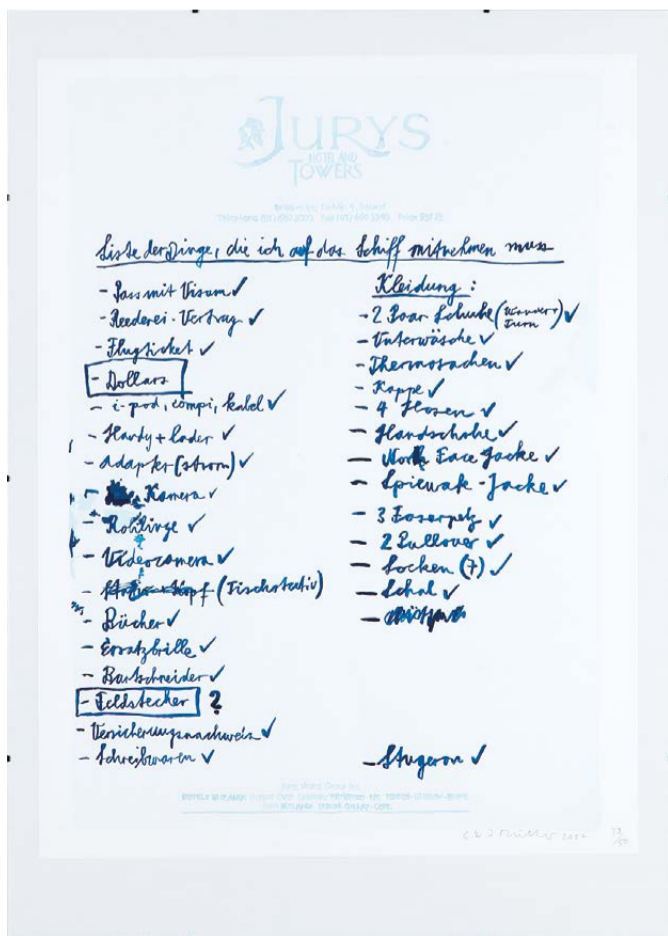 JURYS
HOTEL AND
TOWERS
Liste der Dinge, die ich auf das Schiff mitnehmen muss
- Pass mit Visum ✓
- Reederei-Vertrag ✓
- Flugticket ✓
- Dollars
- i-pod, compi, kabel ✓
- Handy + lader ✓
- Adapter (strom) ✓
- Kamera ✓
- Rohlinge ✓
- Videocamera ✓
- (Tischstativ)
- Bücher ✓
- Ersatzbrille ✓
- Bartschneider ✓
- Feldstecher ?
- Versicherungsnachweis ✓
- Schreibwaren ✓
Kleidung :
- 2 Paar Schuhe (Wander + Turn) ✓
- Unterwäsche ✓
- Thermosachen ✓
- Kappe ✓
- 4 Hosen ✓
- Handschuhe ✓
- North Face Jacke ✓
- Spiewak-Jacke ✓
- 3 Faserpelz ✓
- 2 Pullover ✓
- Socken (7) ✓
- Schal ✓
- Stugeron ✓